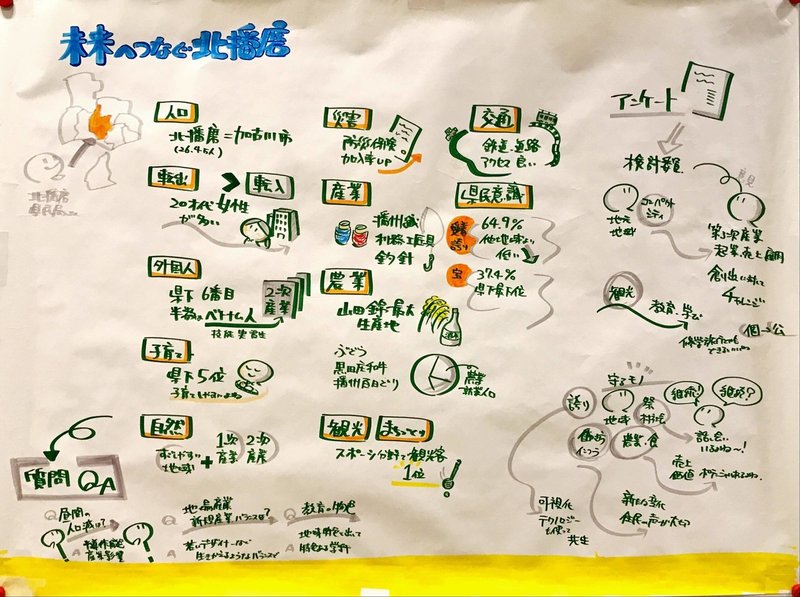 未来へつなぐ北播磨
北播磨
県民局
人口
北播磨=加古川市
(26.4万人)
転出 > 転入
20才代女性
が多い
外国人
県下6番目
半数はベトナム人
技能実習生
2次
産業
子育て
県下5位
子育てしやすいよね
自然
おだやかな
地域
+
1次
産業
2次
産業
災害
防災保険
加入率UP
産業
播州織
利器工匠具
釣針
農業
山田錦は最大
生産地
ぶどう
黒田庄和牛
播州百日どり
農業
就業人口
観光
まちづくり
スポーツ分野で観光客
1位
交通
鉄道、道路
アクセス良い
県民意識
誇り
64.9%
他地域より
低い
宝
37.4%
県下最下位
アンケート
検討委員
意見
地元
地域
コンパクト
シティ
第2次産業
起業、売上、雇用
創り出しに対して
観光
教育・学び
修学旅行でも
できるといいね
個→公
守るモノ
誇り
地域
祭
農業・食
継続!
継続?
話し合い
いるよね〜!
売上
価値
新たな変化
住民の声が大切?
可視化
テクノロジー
も使って
共生
質問 QA
Q 昼間の
人口減は?
A
産業影響
Q 地場産業
新規産業バランスは?
A 若いデザイナーなど
生きがえるようなバランスで
Q 教育の強化
A 地域特色を出して
特色ある学科